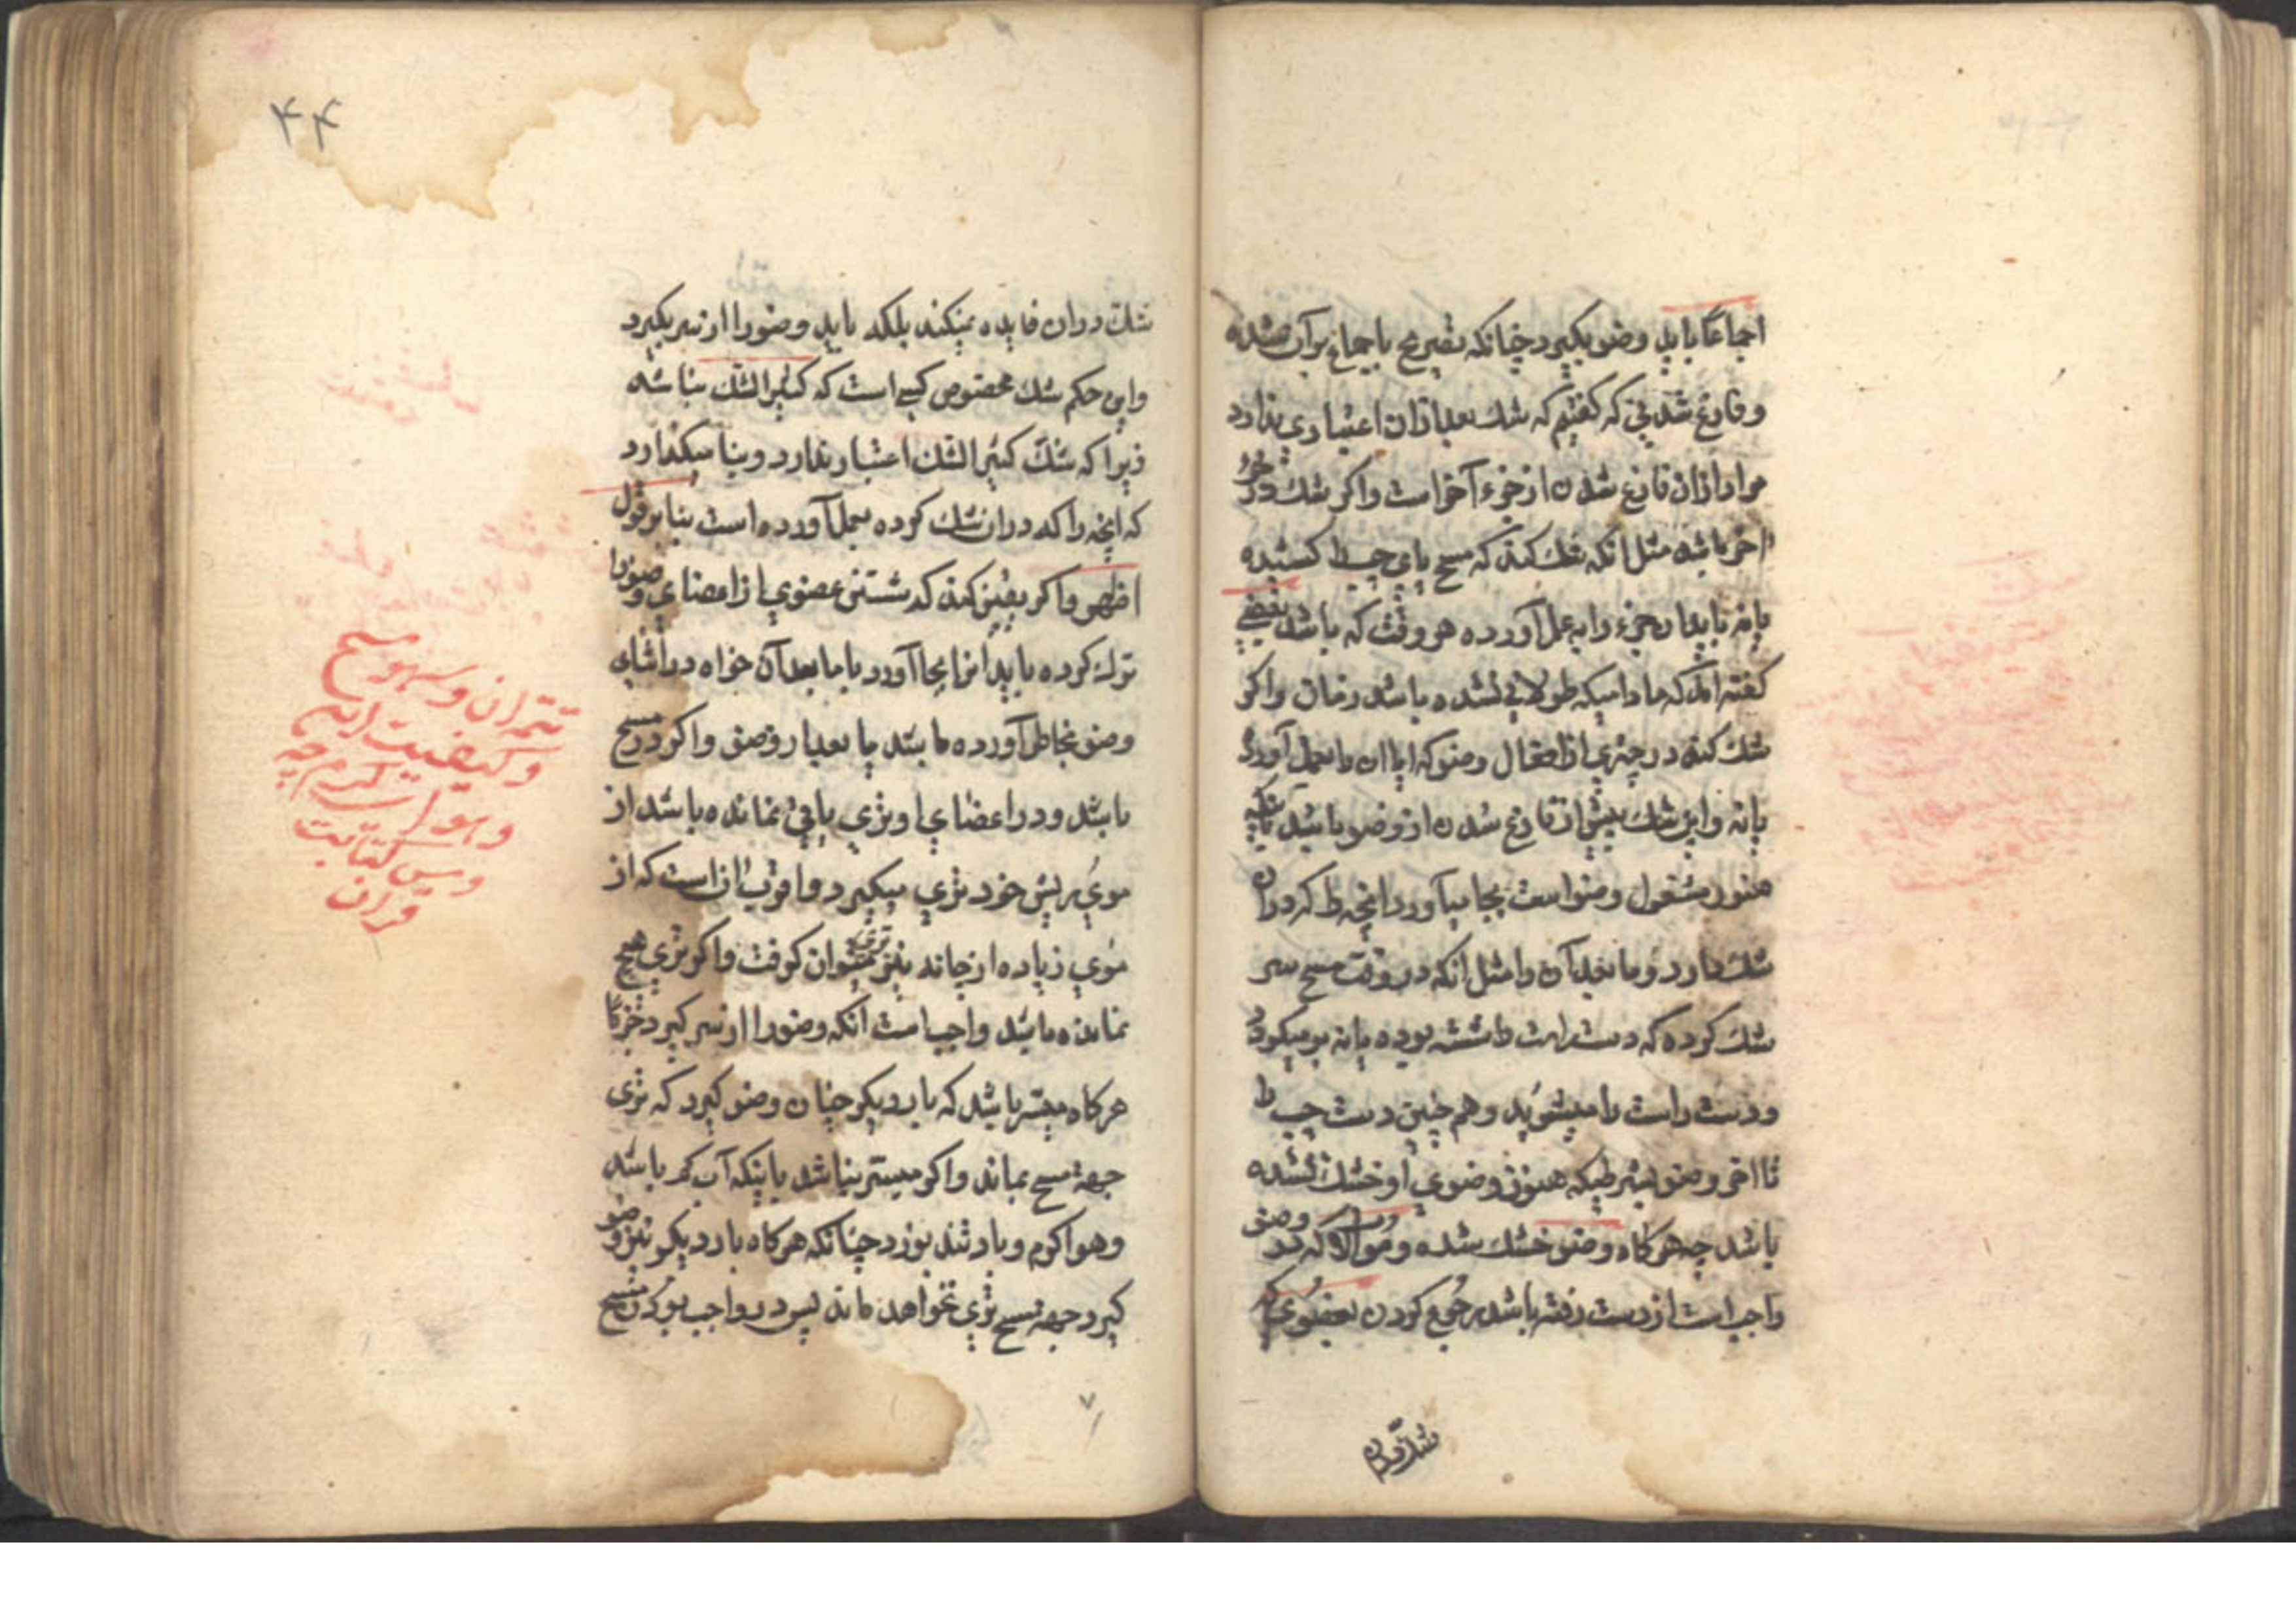 اجماعا باید وضو بگیرد چنانکه تصریح باجماع برآن شده
و فارغ شدنی که گفتیم که شک بعد از ان اعتباری ندارد
مراد ازان فارغ شدن از جزء آخر است واکر شک در جزء
اخر باشد مثل انکه شک کند که مسح پای چپ را کشیده
یا نه باید ان جزء را به عمل آورده هر وقت که باشد بعضی
گفته اند که مادامیکه طولانی نشده باشد زمان واکر
شک کند در چیزی از افعال وضو که ایا ان را بعمل آورده
یا نه واین شک پیش از فارغ شدن از وضو باشد بلکه
هنوز مشغول وضو است بجا میآورد انچه را که دران
شک دارد وما بعد آن را مثل انکه در وقت مسح سر
شک کرده که دست راست را شسته بوده یا نه بر میکردد
ودست راست را میشوید وهم چنین دست چپ را
تا اخر وضو بشرطیکه هنوز وضوی او خشک نشده
باشد چه هرکاه وضو خشک شده وموالاة که در وضو
واجب است از دست رفته باشد رجوع کردن بعضوی که
شک دران
۴۴
شک دران فایده نمیکند بلکه باید وضو را از سر بگیرد
واین حکم شک مخصوص کسی است که کثیر الشک نباشد
زیرا که شک کثیر الشک اعتبار ندارد وبنا میگذارد
که انچه را که دران شک کرده بعمل آورده است بنا بر قول
اظهر واکر یقین کند که شستن عضوی از اعضای وضو را
ترک کرده باید انرا بجا آورد با ما بعد آن خواه در اثنای
وضو بخاطر آورده باشد یا بعد از وضو واکر در مسح
باشد ودر اعضای او تری باقی نمانده باشد از
موی ریش خود تری میکیرد واقرب ان است که از
موی زیاده از چانه نیز تری میتوان کرفت واکر تری هیچ
نمانده باشد واجب است آنکه وضو را از سر کیرد جزما
هرکاه میسر باشد که بار دیکر چنان وضو کیرد که تری
جهة مسح بماند واکر میسر نباشد باینکه آب کم باشد
وهوا کرم وباد تند بوزد چنانکه هرکاه بار دیکر نیز وضو
کیرد جهة مسح تری نخواهد ماند پس در واجب بودن مسح